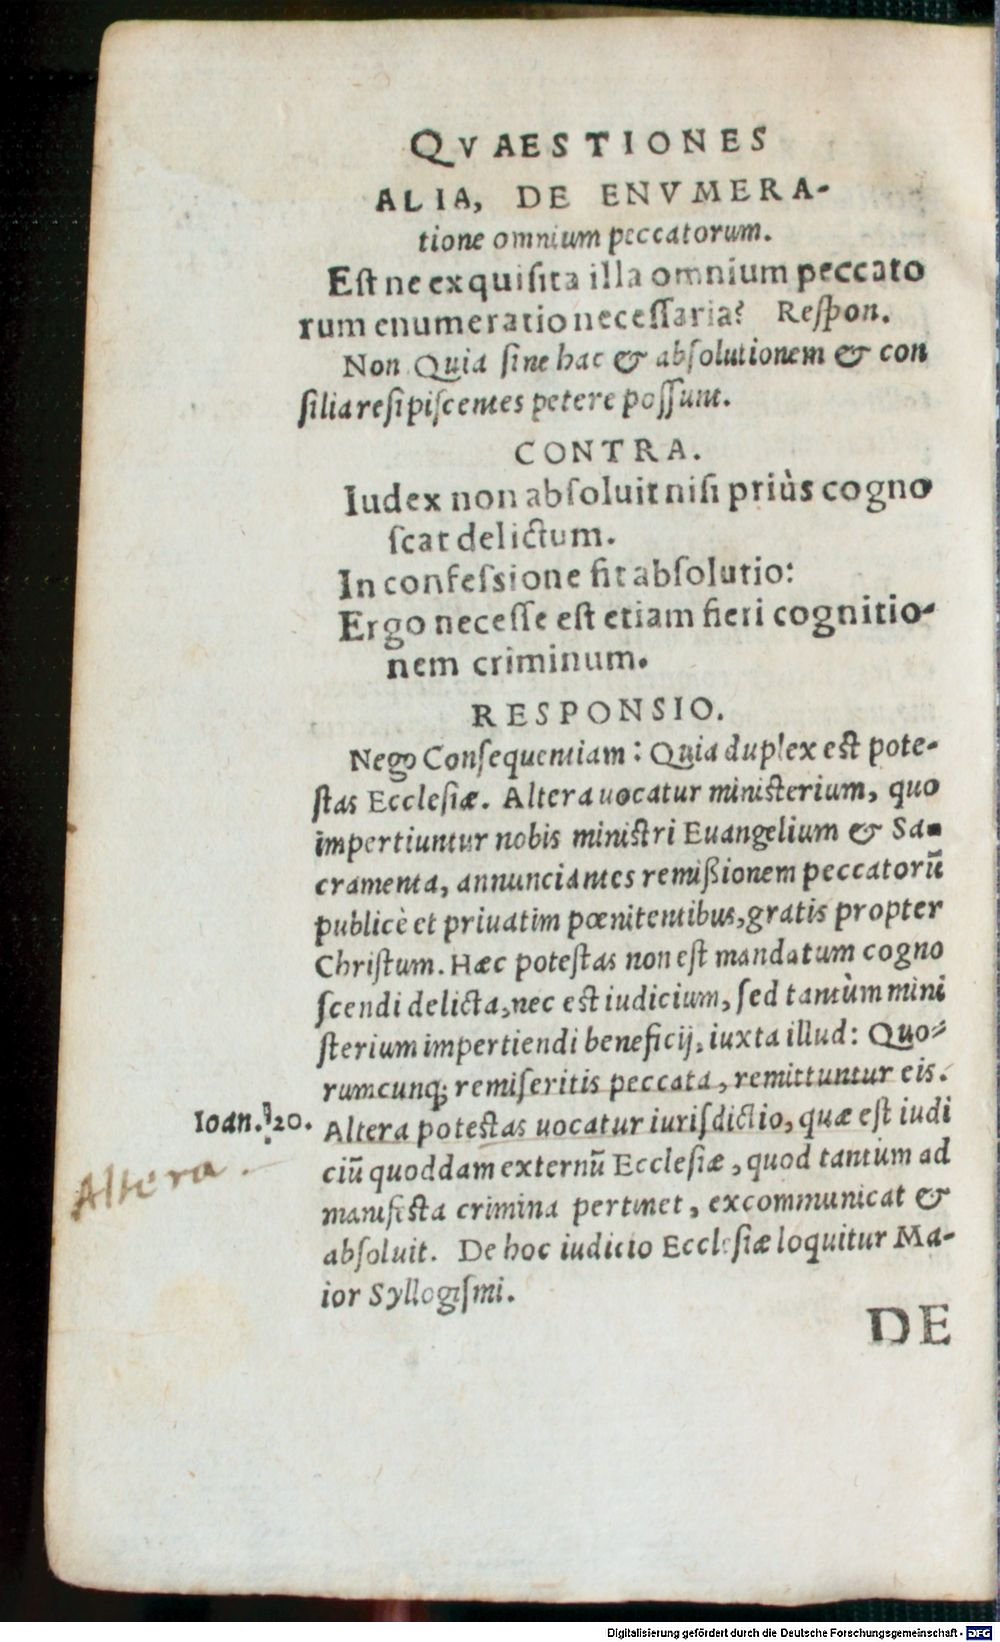 QVAESTIONES
ALIA, DE ENVMERA-
tione omnium peccatorum.
Est ne exquisita illa omnium peccato
rum enumeratio necessaria? Respon.
Non Quia sine hac & absolutionem & con
silia resipiscentes petere possunt.
CONTRA.
Iudex non absoluit nisi priùs cogno
scat delictum.
In confessione fit absolutio:
Ergo necesse est etiam fieri cognitio-
nem criminum.
RESPONSIO.
Nego Consequentiam: Quia duplex est pote-
stas Ecclesiæ. Altera uocatur ministerium, quo
impertiuntur nobis ministri Euangelium & Sa-
cramenta, annunciantes remißionem peccatorũ
publicè et priuatim pœnitentibus, gratis propter
Christum. Hæc potestas non est mandatum cogno
scendi delicta, nec est iudicium, sed tantùm mini
sterium impertiendi beneficij, iuxta illud: Quo-
rumcunq; remiseritis peccata, remittuntur eis.
Ioan. 20.
Altera potestas uocatur iurisdictio, quæ est iudi
Altera
ciũ quoddam externũ Ecclesiæ, quod tantum ad
manifesta crimina pertinet, excommunicat &
absoluit. De hoc iudicio Ecclesiæ loquitur Ma-
ior Syllogismi.
DE
Digitalisierung gefördert durch die Deutsche Forschungsgemeinschaft - DFG